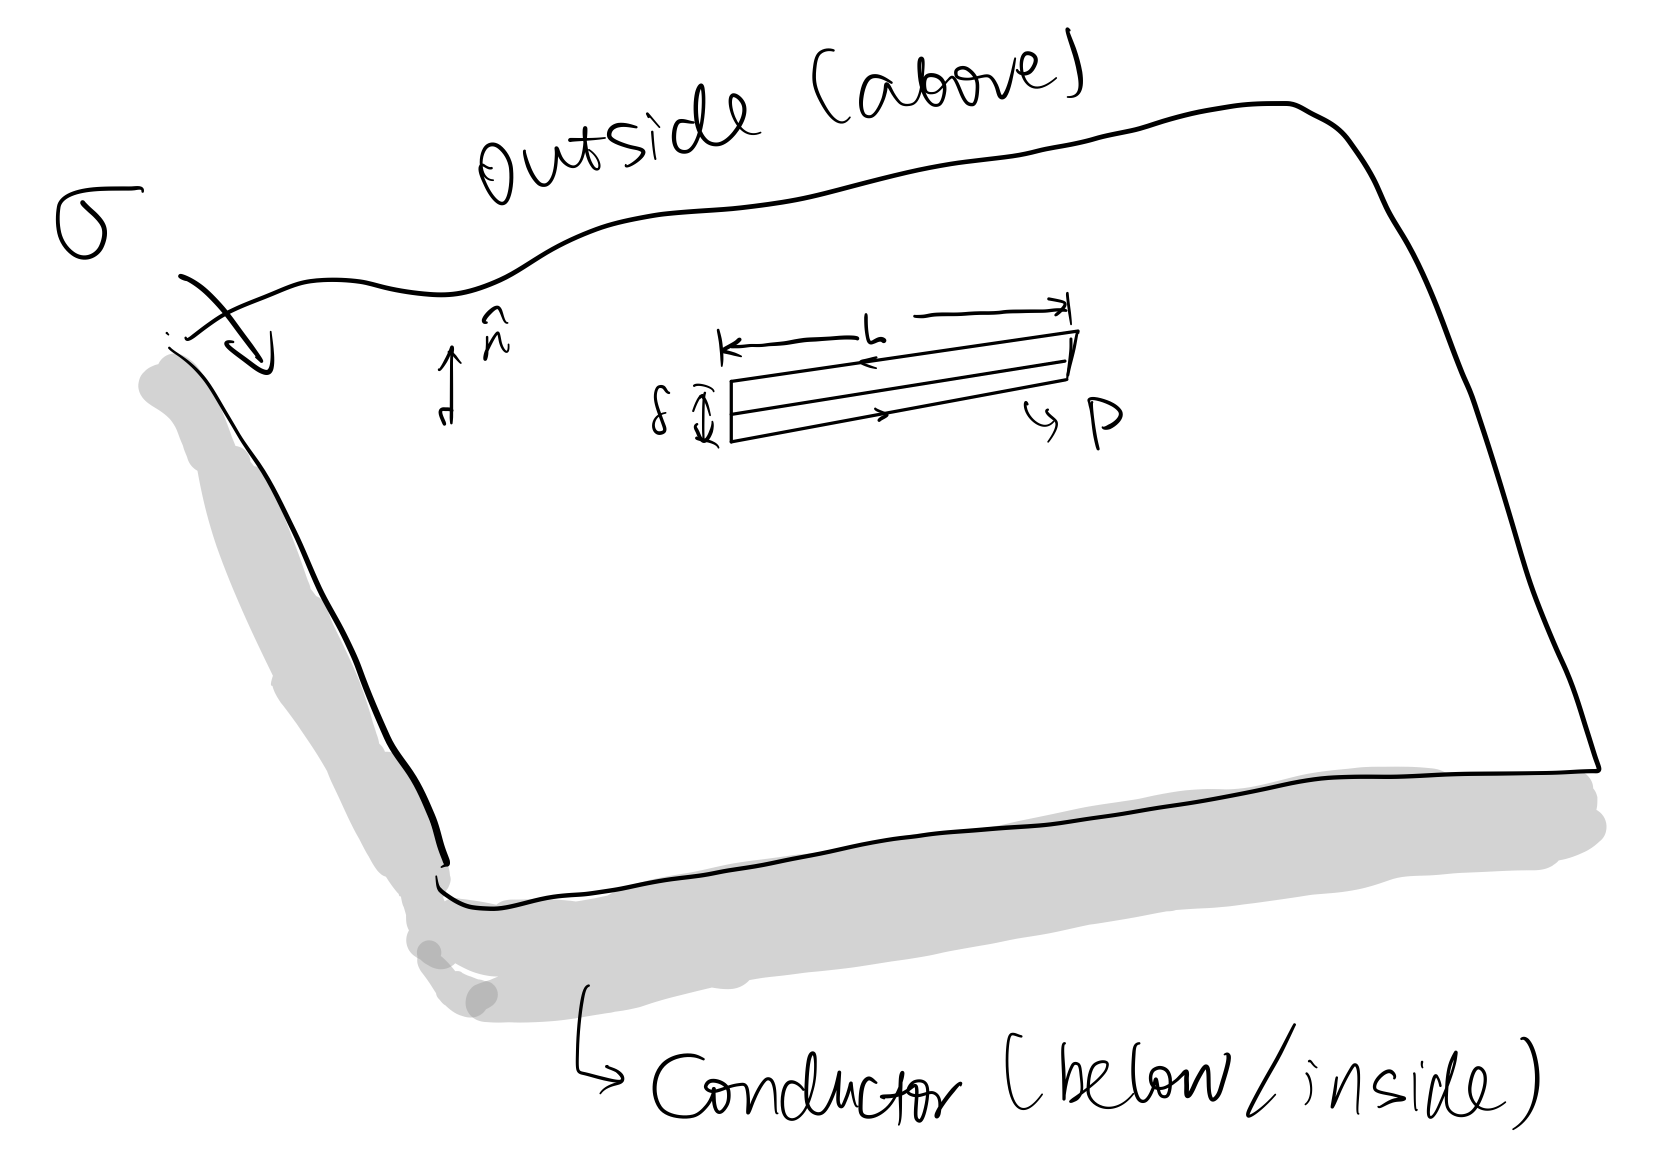 Outside (above)
σ
n̂
L
δ
P
Conductor (below/inside)